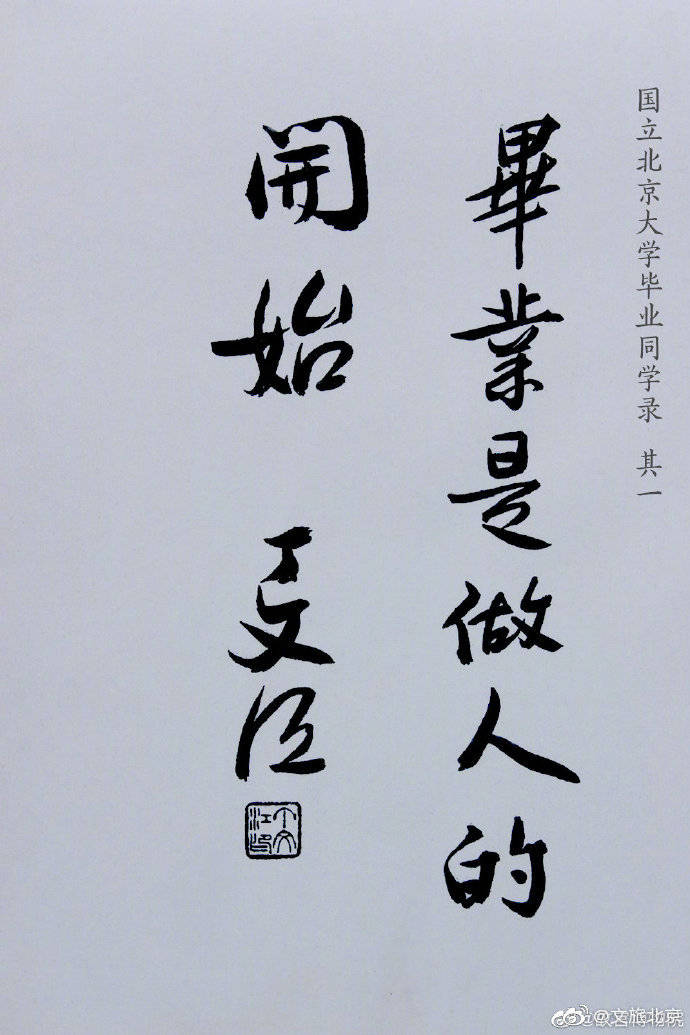 国立北京大学毕业同学录 其一
畢業是做人的
開始 丁文江
丁文江印
@文旅北京